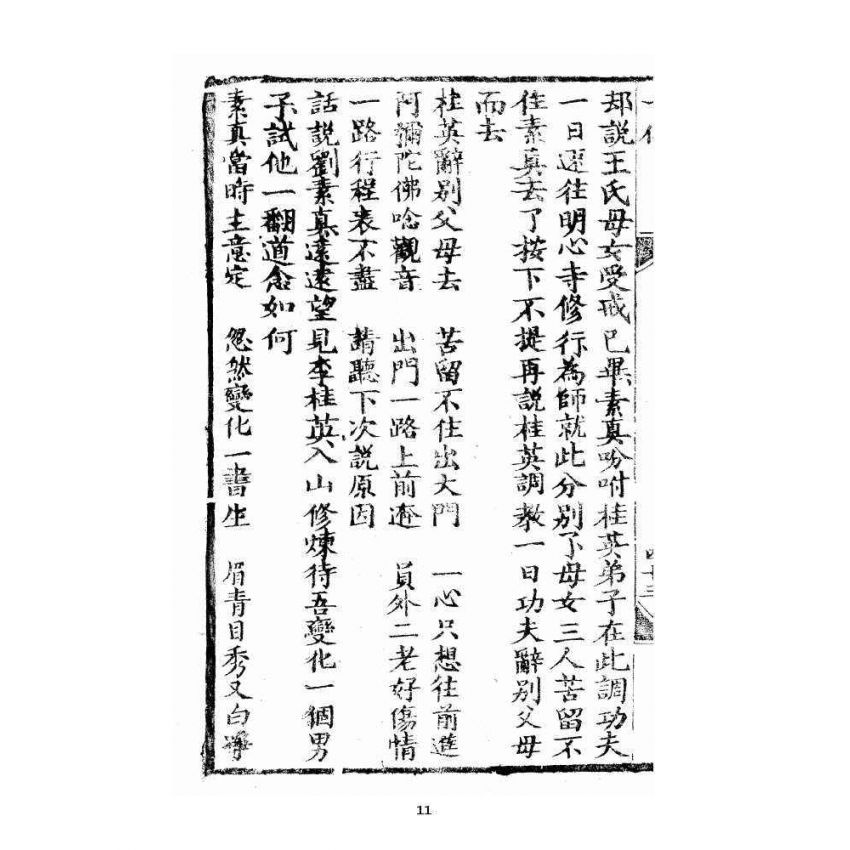 却説王氏母女受戒已畢素真吩咐桂英弟子在此調功夫
一日選往明心寺修行為師就此分別了母女三人苦留不
住素真去了按下不提再説桂英調養一日功夫辭別父母
而去
桂英辭別父母去 苦留不住出大門 一心只想往前進
阿彌陀佛唸觀音 出門一路上前遊 員外二老好傷情
一路行程表不盡 請聽下次説原因
話説劉素真遠遠望見李桂英入山修煉待吾變化一個男
子試他一翻道念如何
素真當時主意定 忽然變化一書生 眉青目秀又白淨
四十三
11